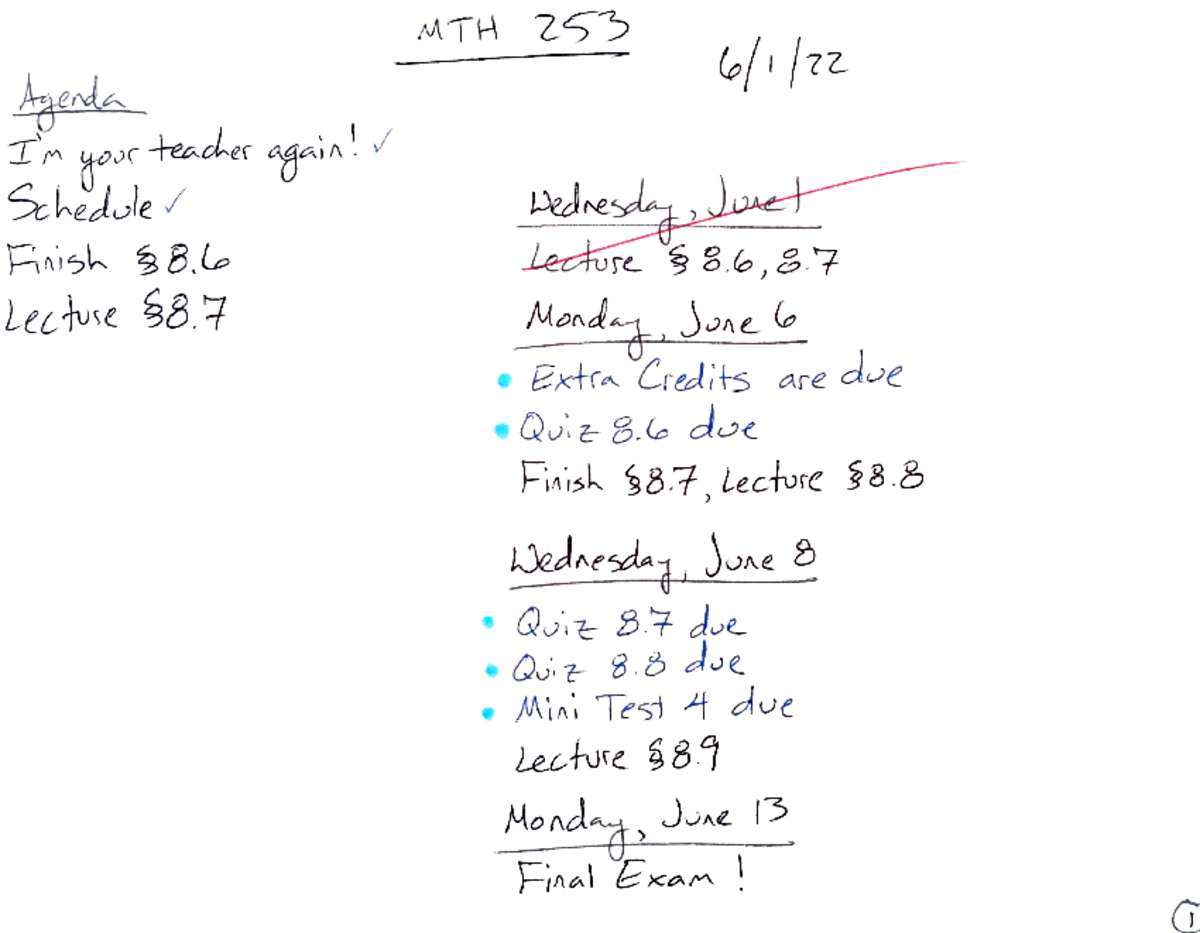 MTH 253
6/1/22
Agenda
I'm your teacher again! ✓
Schedule ✓
Finish §8.6
Lecture §8.7
Wednesday, June 1
Lecture §8.6, 8.7
Monday, June 6
• Extra Credits are due
• Quiz 8.6 due
Finish §8.7, Lecture §8.8
Wednesday, June 8
• Quiz 8.7 due
• Quiz 8.8 due
• Mini Test 4 due
Lecture §8.9
Monday, June 13
Final Exam!
1